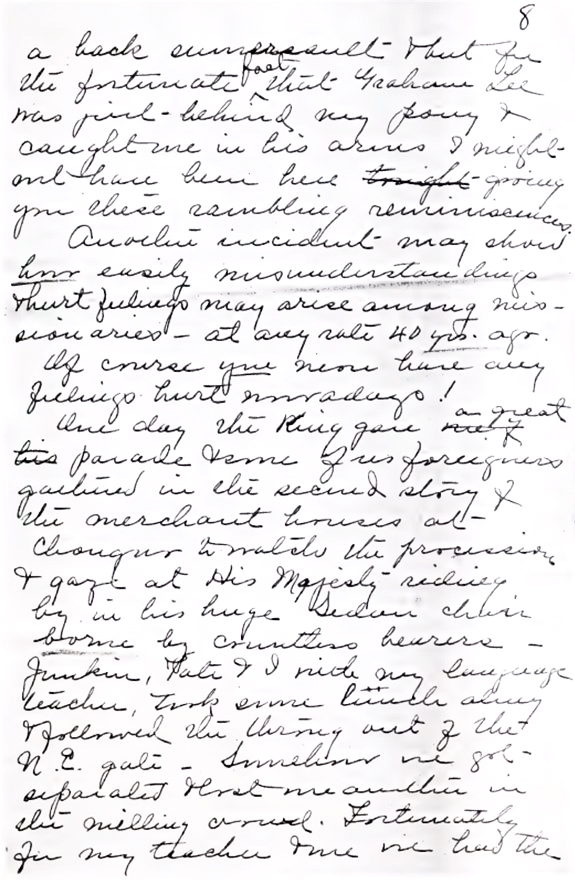 8
a back summersault & but for
the fortunate fact that Graham Lee
was just behind my pony &
caught me in his arms I might
not have been here tonight giving
you these rambling reminiscences.
Another incident may show
how easily misunderstandings
& hurt feelings may arise among mis-
sionaries – at any rate 40 yrs. ago.
Of course you never have any
feelings hurt nowadays!
One day the King gave one of a great
his parade & some of us foreigners
gathered in the second story of
the merchant houses at
Chongno to watch the procession
& gaze at His Majesty riding
by in his huge Sedan chair
borne by countless bearers –
Junkin, Tate & I with my language
teacher, took some lunch along
& followed the throng out of the
N.E. gate – Somehow we got
separated & lost one another in
the milling crowd. Fortunately
for my teacher & me we had the